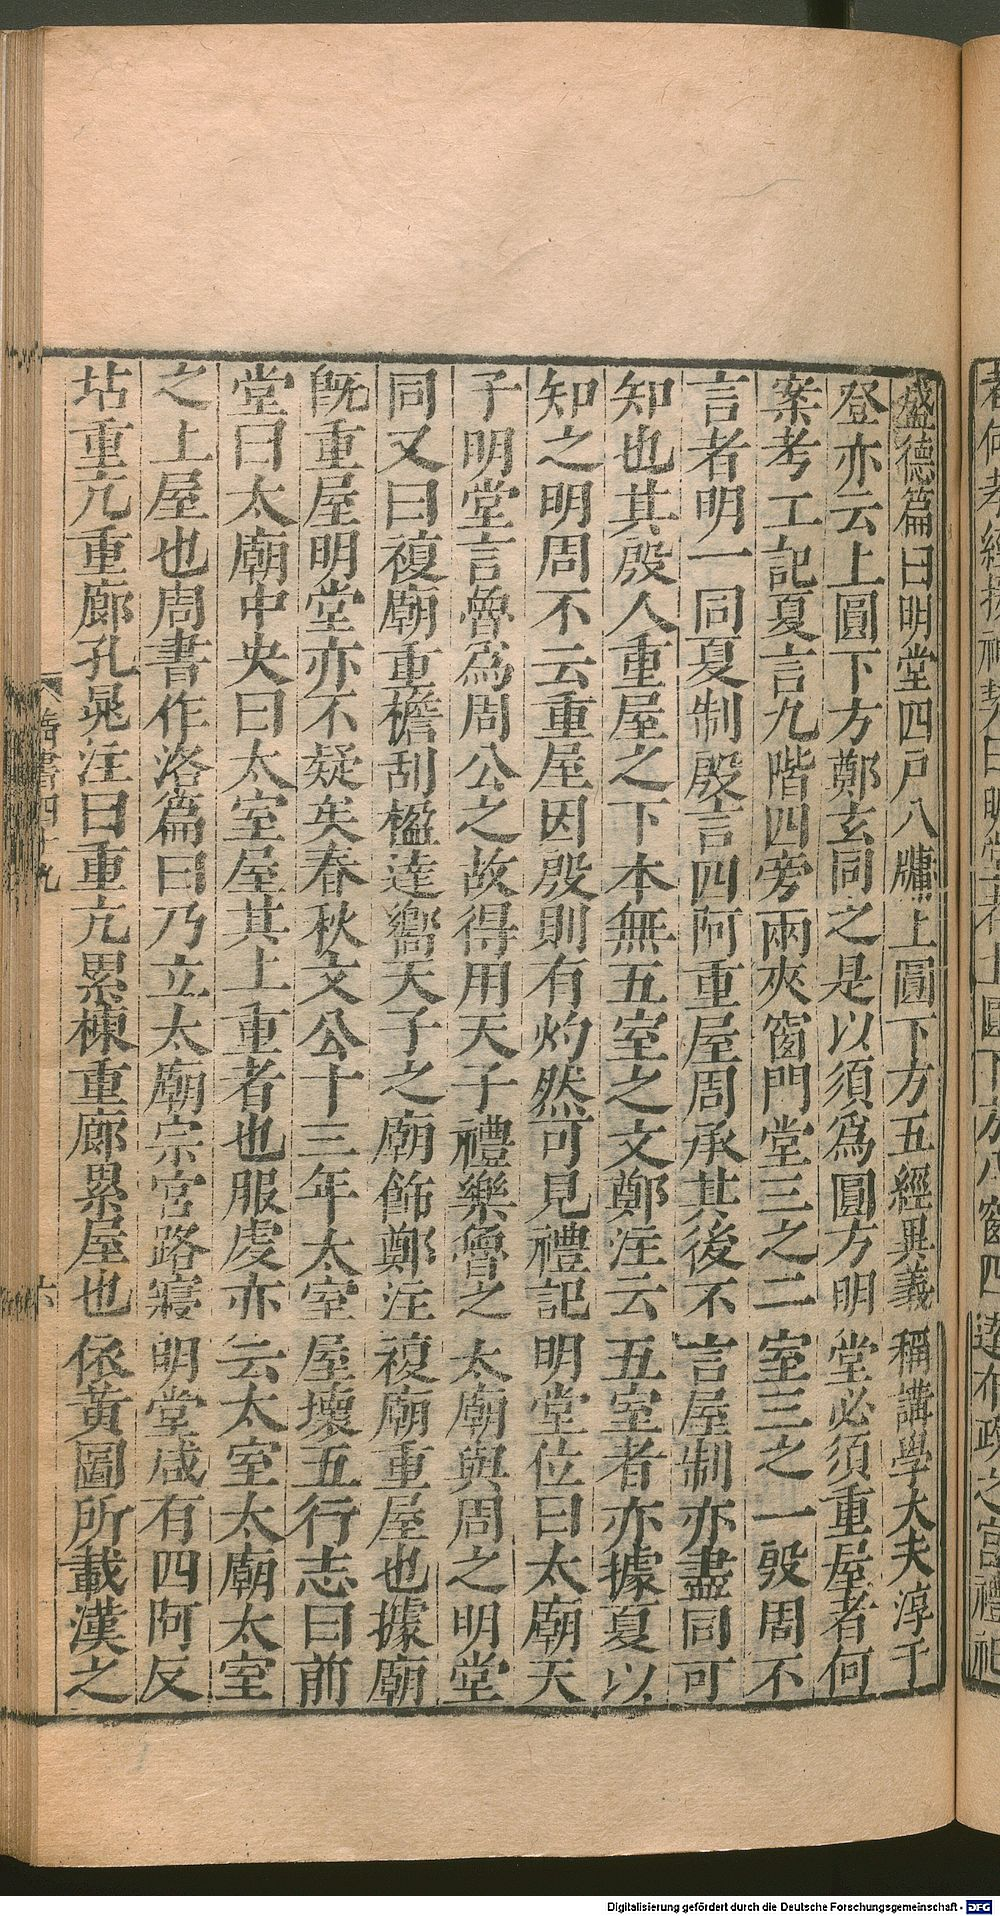 盛德篇曰明堂四戶八牖上圓下方五經異義稱講學大夫淳于
登亦云上圓下方鄭玄同之是以須爲圓方明堂必須重屋者何
案考工記夏言九階四旁兩夾窗門堂三之二室三之一殷周不
言者明一同夏制殷言四阿重屋周承其後不言屋制亦盡同可
知也其殷人重屋之下本無五室之文鄭注云五室者亦據夏以
知之明周不云重屋因殷則有灼然可見禮記明堂位曰太廟天
子明堂言魯爲周公之故得用天子禮樂魯之太廟與周之明堂
同又曰複廟重檐刮楹達嚮天子之廟飾鄭注複廟重屋也據廟
旣重屋明堂亦不疑矣春秋文公十三年太室屋壞五行志曰前
堂曰太廟中央曰太室屋其上重者也服虔亦云太室太廟太室
之上屋也周書作洛篇曰乃立太廟宗宮路寢明堂咸有四阿反
坫重亢重廊孔晁注曰重亢累棟重廊累屋也依黃圖所載漢之
書四十九
六
Digitalisierung gefördert durch die Deutsche Forschungsgemeinschaft - DFG